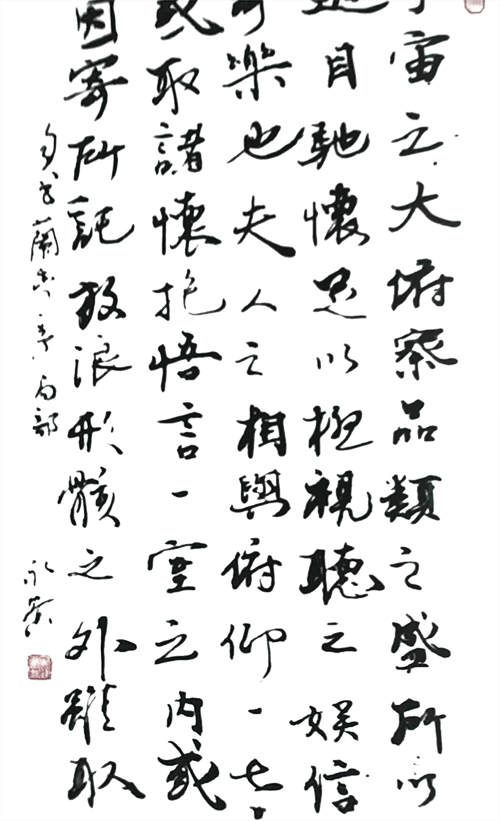 宙之大俯察品類之盛所以
遊目馳懷足以極視聽之娛信
可樂也夫人之相與俯仰一世
或取諸懷抱悟言一室之內或
因寄所託放浪形骸之外雖取
蘭亭序局部
永